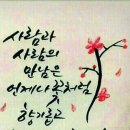 사람과
사람의
만남은
언제나 꽃처럼
향기롭고